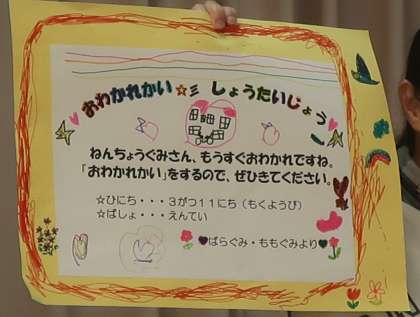 おわかれかい☆ミ しょうたいじょう
ねんちょうぐみさん、もうすぐおわかれですね。
「おわかれかい」をするので、ぜひきてください。
☆ひにち・・・３がつ１１にち（もくようび）
☆ばしょ・・・えんてい
♥ばらぐみ・ももぐみより♥